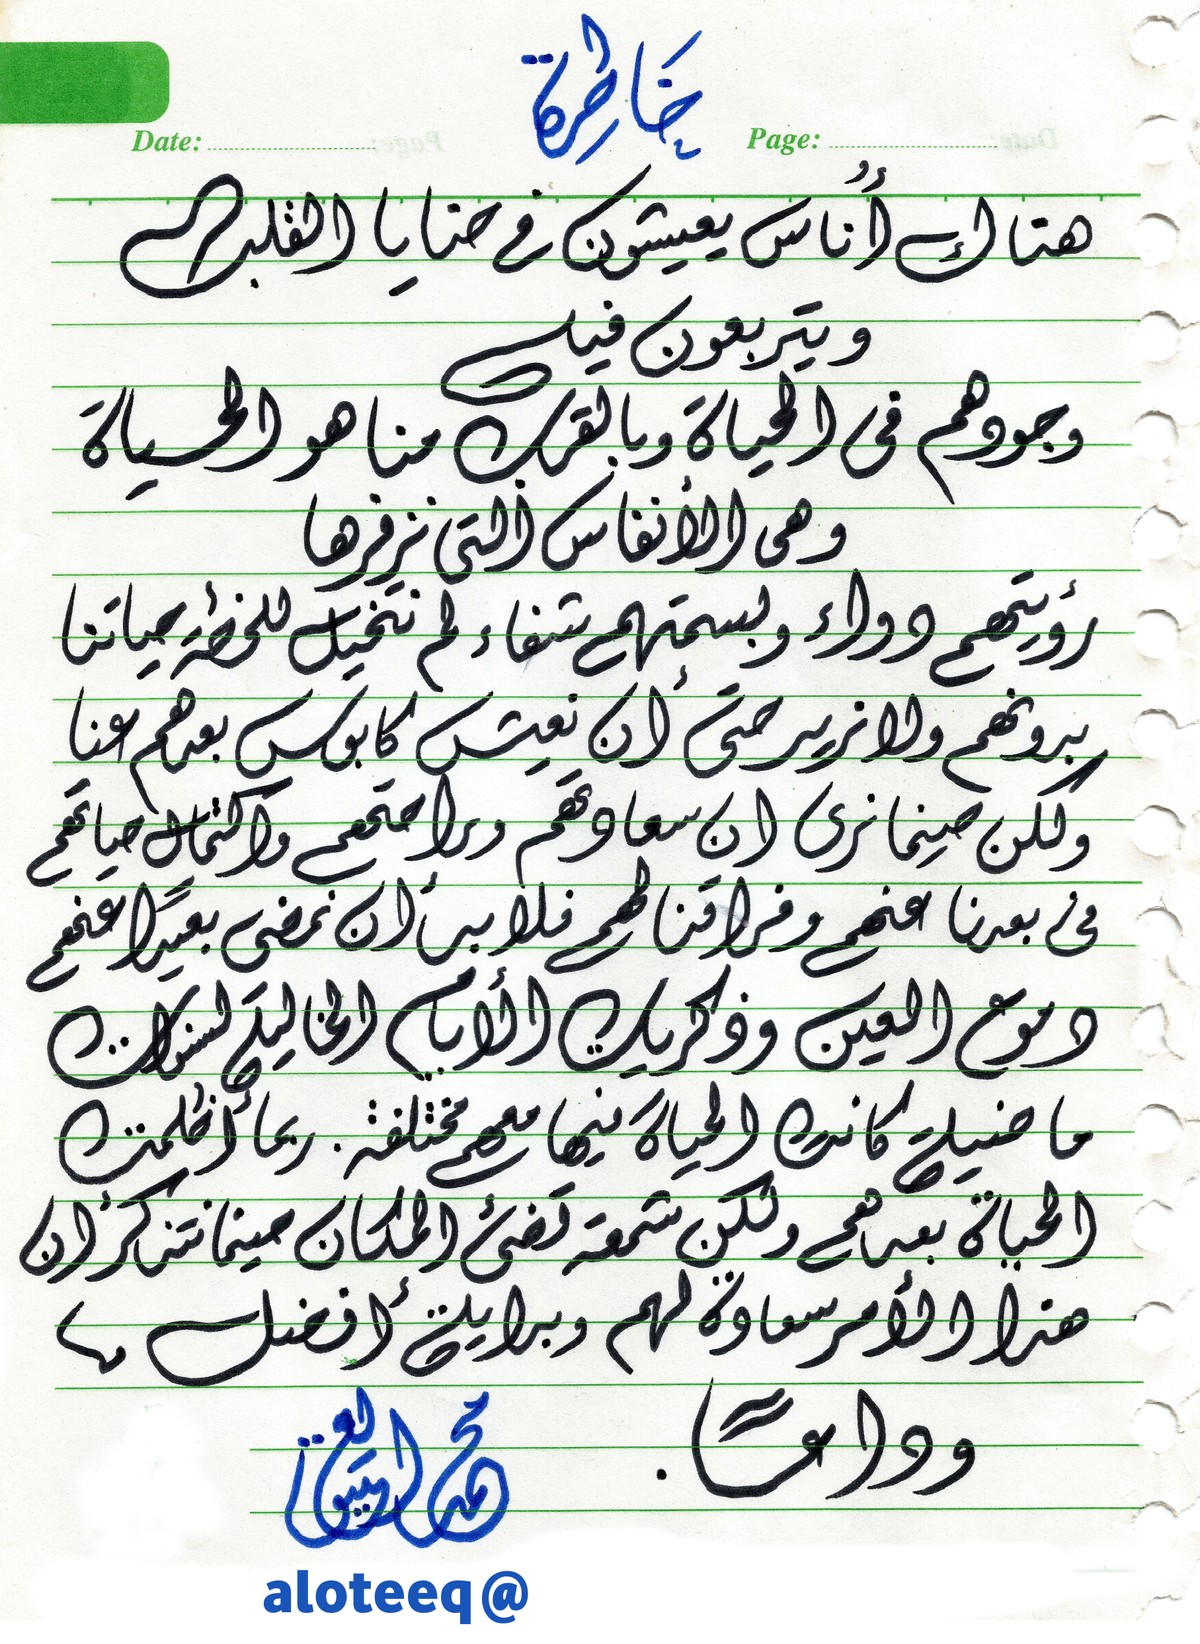 خاطرة
Date: Page:
هناك أُناس يعيشون في حنايا القلب
ويتربعون فيه
وجودهم في الحياة وبالقرب منا هو الحياة
وهي الأنفاس التي نزفرها
رؤيتهم دواء وبسمتهم شفاء لم نتخيل للحظة حياتنا
بدونهم ولا نريد حتى أن نعيش كابوس بعدهم عنا
ولكن حينما نرى ان سعادتهم وراحتهم واكتمال حياتهم
في بعدنا عنهم وفراقنا لهم فلا بد أن نمضي بعيدًا عنهم
دموع العين وذكريات الأيام الخالية لسنوات
ماضية كانت الحياة فيها معهم مختلفة . ربما أظلمت
الحياة بعدهم ولكن شمعة تضئ المكان حينما نتذكر أن
هذا الأمر سعادة لهم وبداية أفضل
وداعاً .
محمد العتيق
aloteeq@